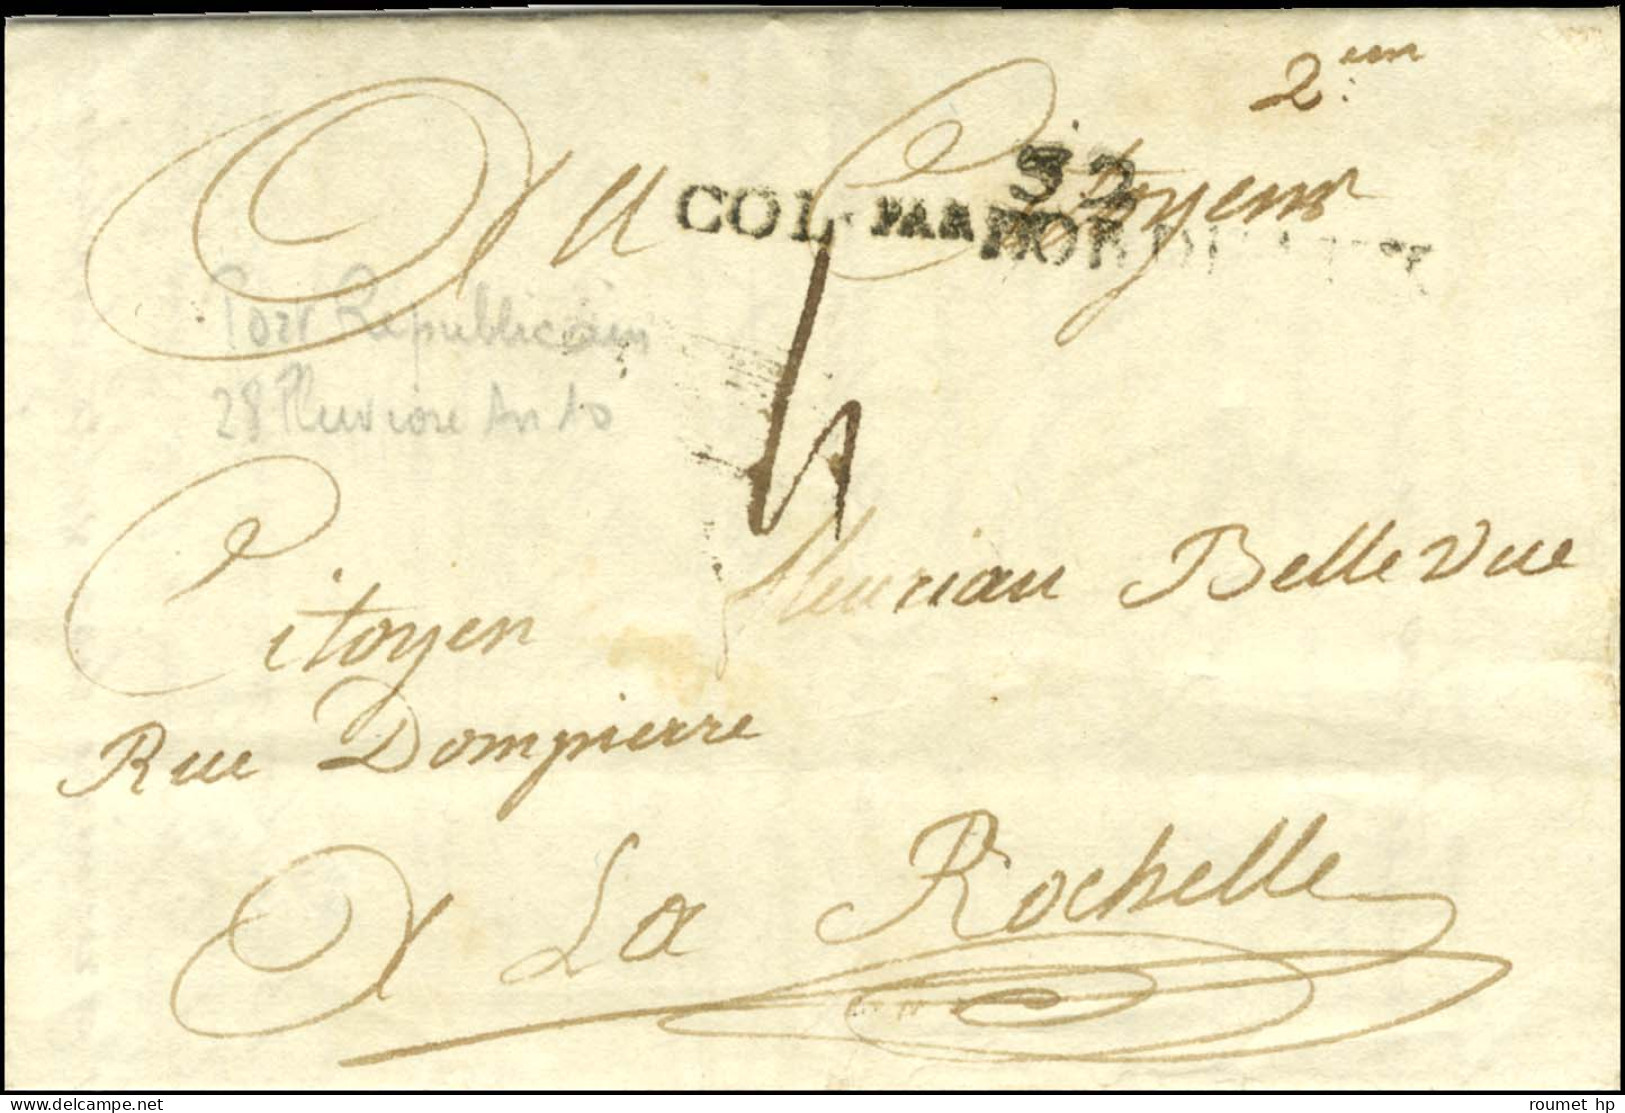 2.em
Au Citoyen
32
COL. PAR BORDEAUX
Port Républicain
28 Pluviose An 10
4
Citoyen fleuriau BelleVue
Rue Dompierre
A La Rochelle
roumet hp